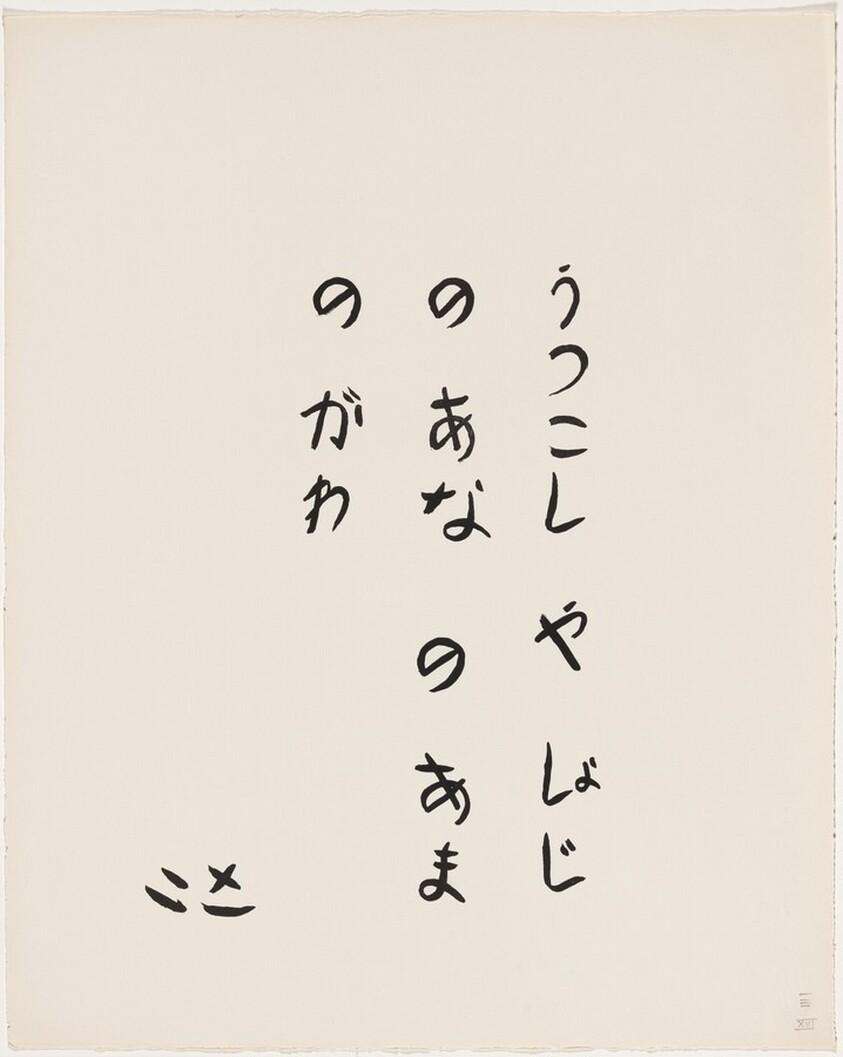 うつこし や しょじ
の あな の あま
の がわ
XVI